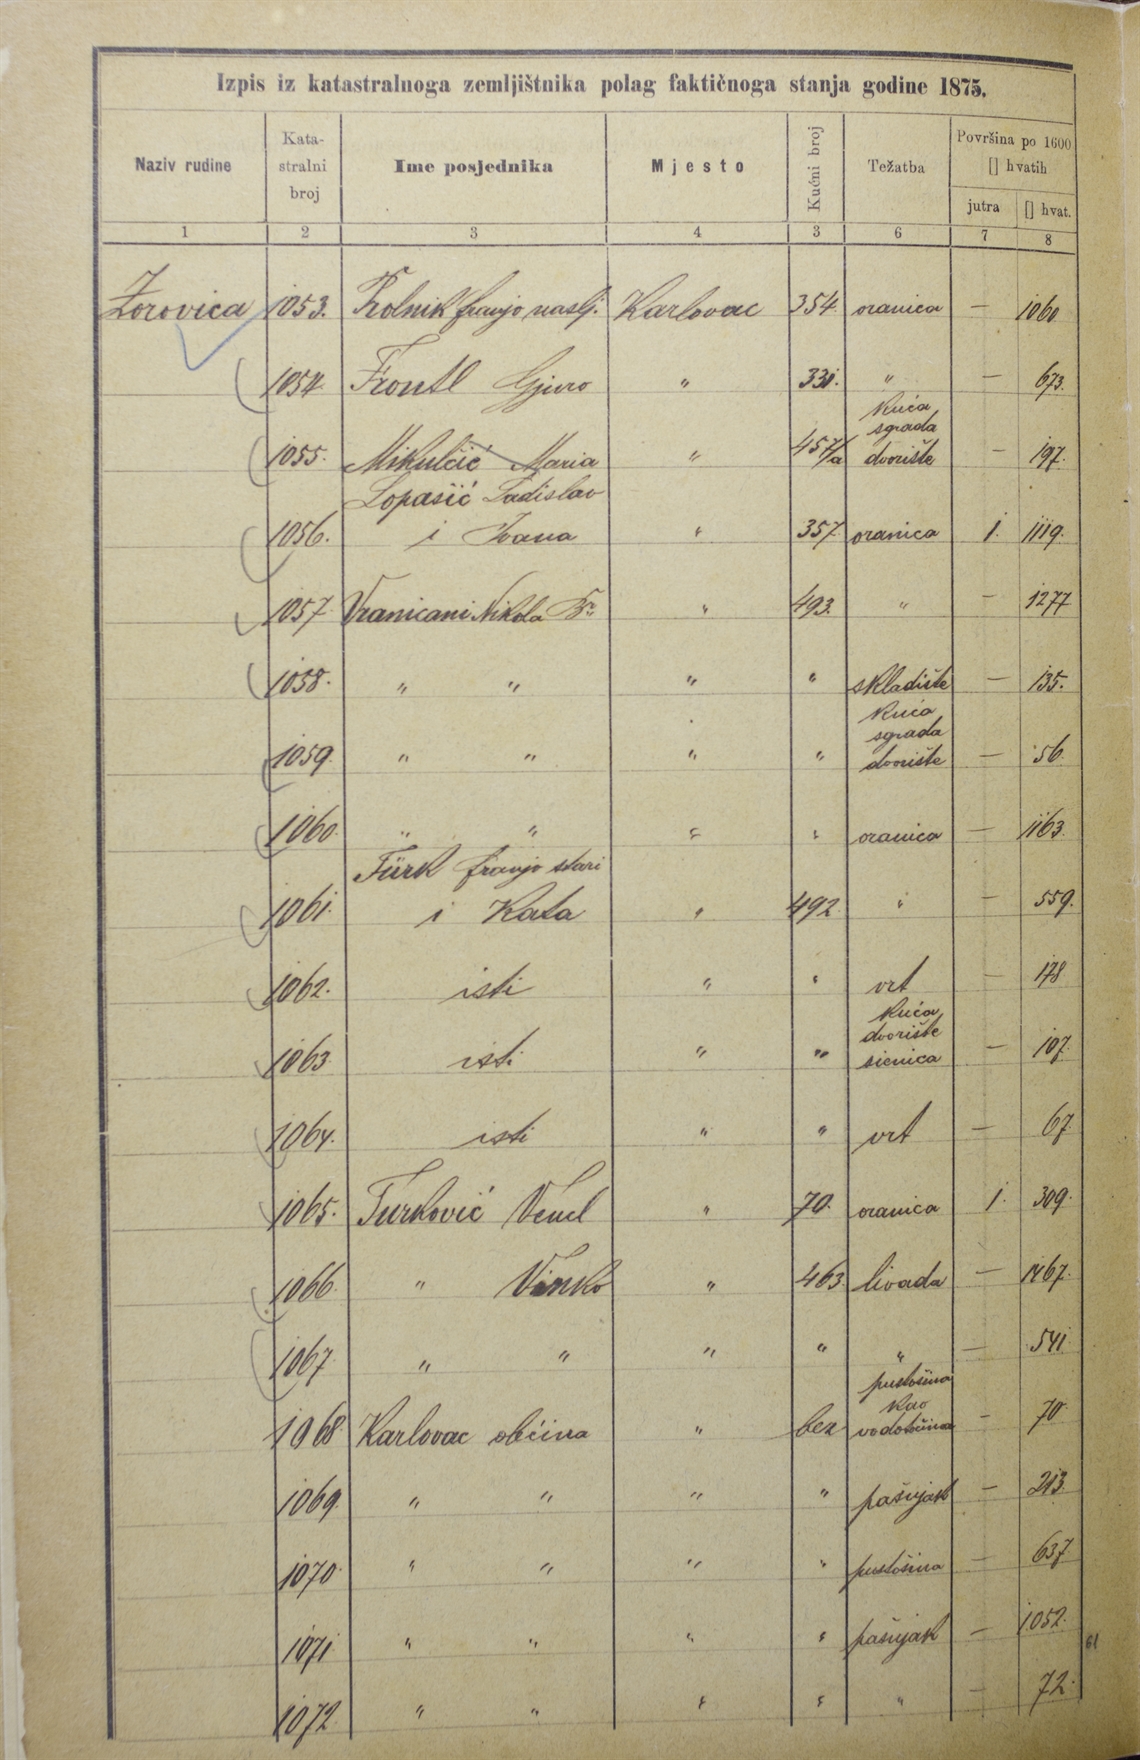 Izpis iz katastralnoga zemljištnika polag faktičnoga stanja godine 1875.
Naziv rudine Kata- stralni broj Ime posjednika Mjesto Kućni broj Težatba Površina po 1600 [] hvatih
jutra [] hvat.
1 2 3 4 3 6 7 8
Zorovica 1053. Franjo naslj. Karlovac 354. oranica — 1060
1054. Frontl Gjuro " 331. " — 673.
kuća
sgrada
1055. Mikulčić Maria " 457/a dvorište — 197.
Lopašić Ladislav
1056. i Ivana " 357 oranica 1. 1119.
1057 Vranicani Nikola Br. " 493. " — 1277
1058. " " " " skladište — 135.
kuća
sgrada
1059. " " " " dvorište — 56.
1060. " " " " oranica — 1163.
Türk Franjo stari
1061. i Kata " 492. " — 559.
1062. isti " " vrt — 178
kuća
dvorište
1063 isti " " sienica — 107.
1064. isti " " vrt — 67
1065. Turković Vencl " 70. oranica 1. 309.
1066 " Vinko " 463. livada — 1467.
1067 " " " " " — 541
pustošina
kao
1068 Karlovac občina " bez vodotočina — 70
1069. " " " " pašnjak — 213.
1070 " " " " pustošina — 637
1071 " " " " pašnjak — 1052.
61
1072 " " " " " — 72.